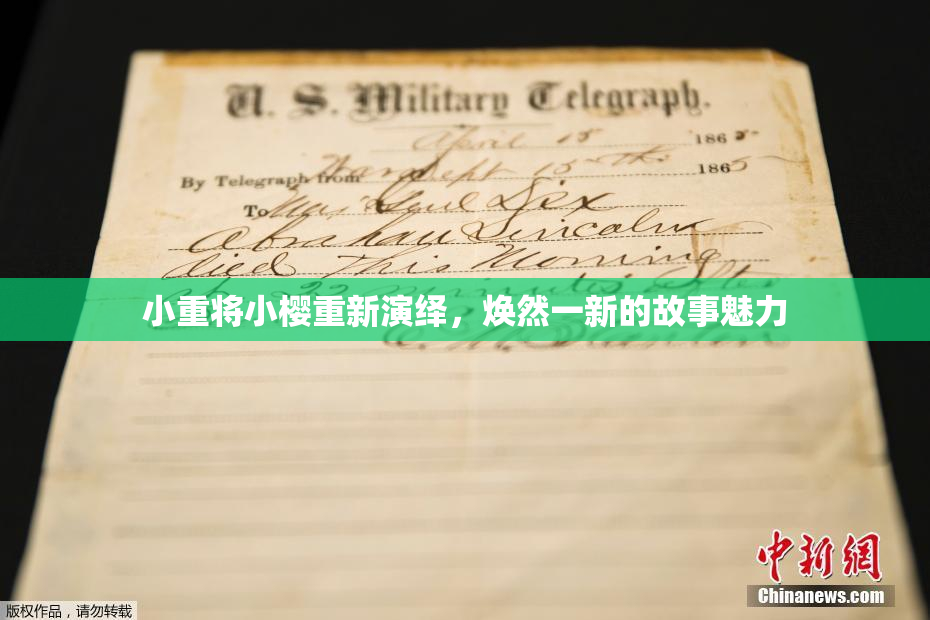 U. S. Military Telegraph.
April 15 1865
By Telegraph from War Dept 15th 1865
To Maj Genl Dix
Abraham Lincoln
died This Morning
22 minutes after
小重将小樱重新演绎，焕然一新的故事魅力
E. M. Stanton
中新网
Chinanews.com
版权作品，请勿转载